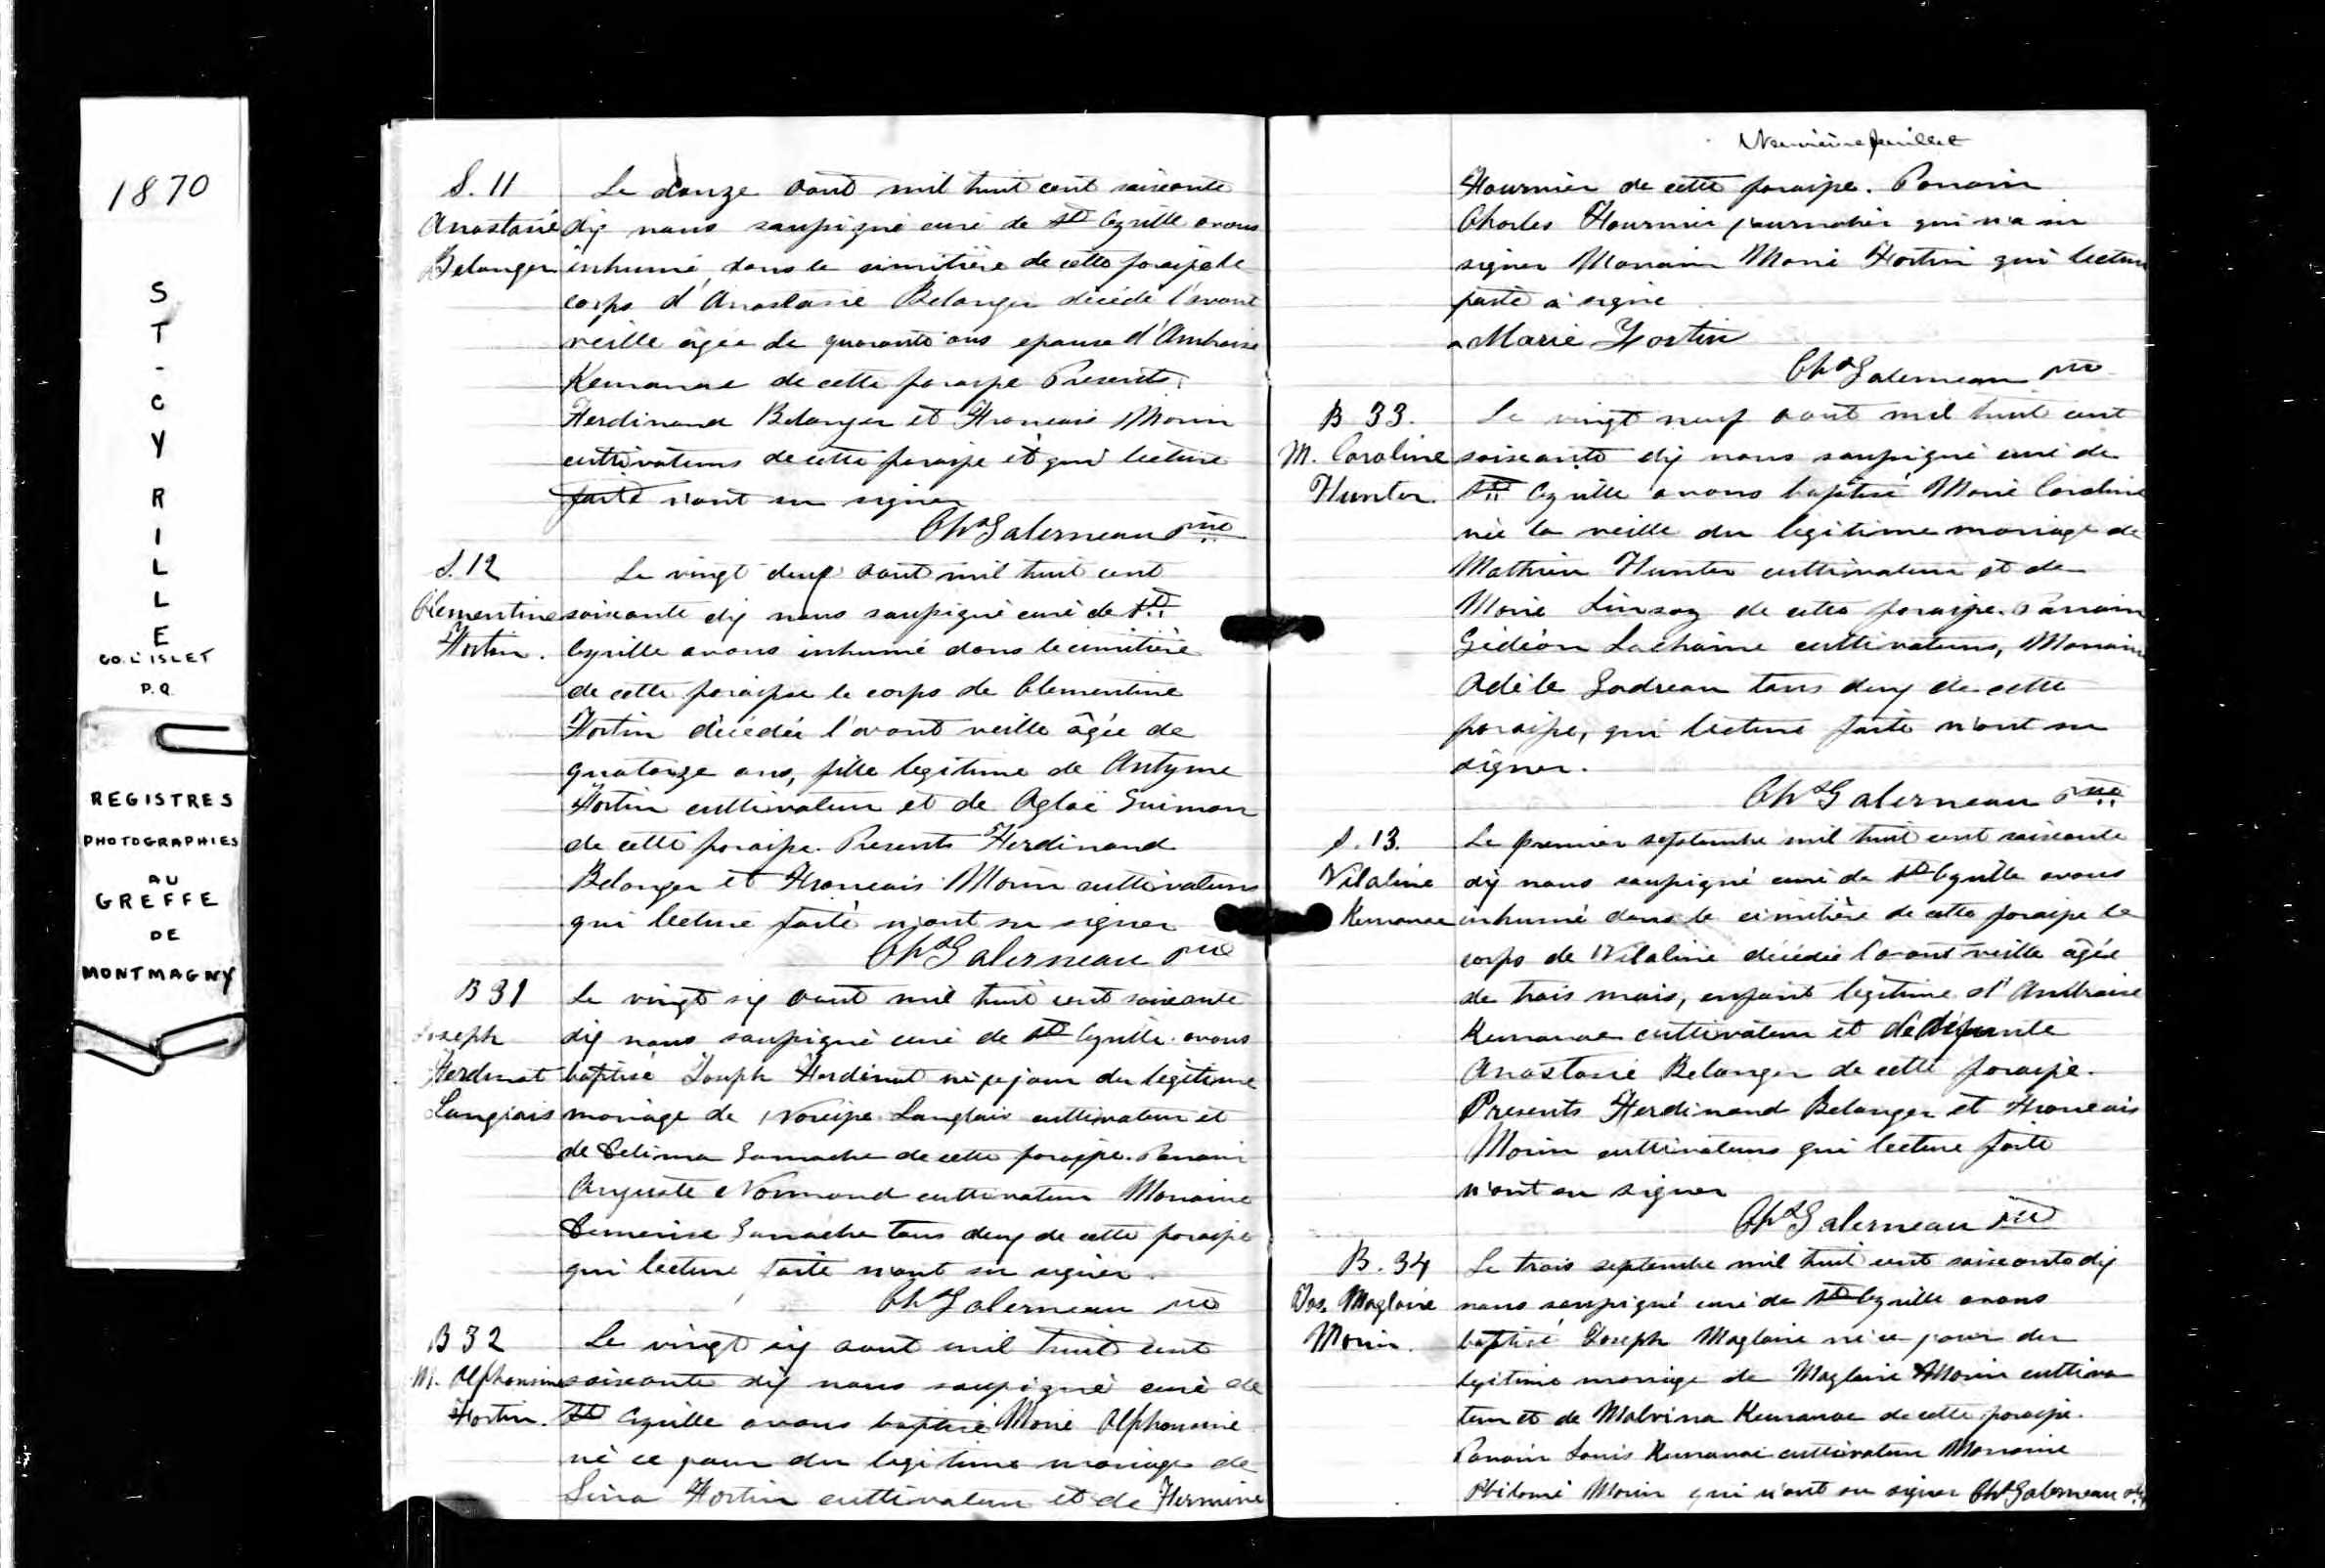 1870
S
T
-
C
Y
R
I
L
L
E
CO. L'ISLET
P.Q.
REGISTRES
PHOTOGRAPHIES
AU
GREFFE
DE
MONTMAGNY
S. 11
Anastasie
Belanger
Le douze aout mil huit cent soixante
dix nous soussigné curé de St Cyrille avons
inhumé dans le cimitière de cette paroisse le
corps d'Anastasie Belanger décédé l'avant
veille âgée de quarante ans epouse d'Ambroise
Kemanae de cette paroisse Presents
Ferdinand Belanger et Francais Morin
cultivateurs de cette paroisse et qui lecture
faite n'ont su signer
Chs Galerneau ptre
S. 12
Clementine
Fortin.
Le vingt deux aout mil huit cent
soixante dix nous soussigné curé de St
Cyrille avons inhumé dans le cimitière
de cette paroisse le corps de Clementine
Fortin décédée l'avant veille âgée de
quatorze ans, fille legitime de Antyme
Fortin cultivateur et de Aglaé Guimon
de cette paroisse. Presents Ferdinand
Belanger et Francais Morin cultivateurs
qui lecture faite n'ont su signer
Chs Galerneau ptre
B 31
Joseph
Ferdinat
Langlais
Le vingt six aout mil huit cent soixante
dix nous soussigné curé de St Cyrille avons
baptisé Joseph Ferdinat né ce jour du légitime
mariage de Norcisse Langlais cultivateur et
de Celima Gamache de cette paroisse. Parrain
Auguste Normand cultivateur Maraine
Demerise Gamache tous deux de cette paroisse
qui lecture faite n'ont su signer.
Chs Galerneau ptre
B 32
M. Alphonsine
Fortin.
Le vingt six aout mil huit cent
soixante dix nous soussigné curé de
St Cyrille avons baptisé Marie Alphonsine
né ce jour du legitime mariage de
Fortin cultivateur et de Hermine
Neuvième feuillet
Fournier de cette paroisse. Parrain
Charles Fournier journalier qui n'a su
signer Maraine Marie Fortin qui lecture
faite a signé
Marie Fortin
Chs Galerneau ptre
B 33.
M. Caroline
Hunter.
Le vingt neuf aout mil huit cent
soixante dix nous soussigné curé de
St Cyrille avons baptisé Marie Caroline
née la veille du legitime mariage de
Mathieu Hunter cultivateur et de
Marie Linsay de cette paroisse. Parrain
Gédéon Lachaine cultivateurs, Maraine
Adèle Godreau tous deux de cette
paroisse, qui lecture faite n'ont su
signer.
Chs Galerneau ptre
S. 13.
Vilaline
Kemanae
Le premier septembre mil huit cent soixante
dix nous soussigné curé de St Cyrille avons
inhumé dans le cimitière de cette paroisse le
corps de Vilaline décédée l'avant veille âgée
de trois mois, enfant légitime d'Ambroise
Kemanae cultivateur et de défunte
Anastasie Belanger de cette paroisse.
Presents Ferdinand Belanger et Francais
Morin cultivateurs qui lecture faite
n'ont su signer
Chs Galerneau ptre
B. 34
Jos. Magloire
Morin.
Le trois septembre mil huit cent soixante dix
nous soussigné curé de St Cyrille avons
baptisé Joseph Magloire né ce jour du
legitime mariage de Magloire Morin cultiva
teur et de Malvina Kemanae de cette paroisse.
Parrain Louis Kemanae cultivateur Marraine
Philomé Morin qui n'ont su signer Chs Galerneau ptre